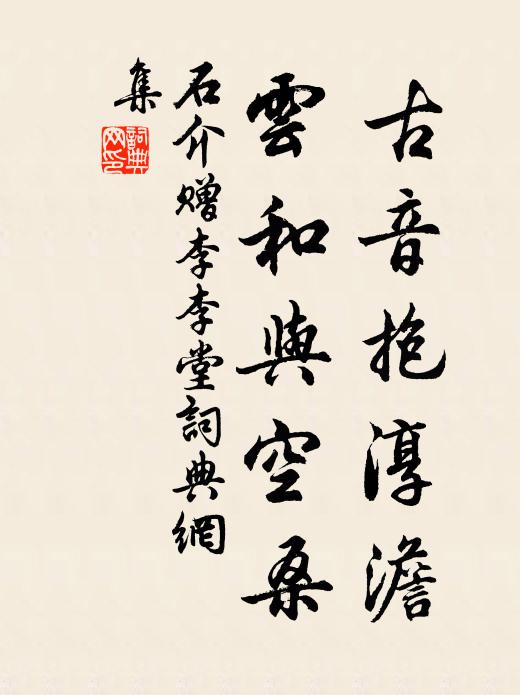 古音抱淳澹
雲和與空桑
石介贈李李堂詞典網
集
詞典網印